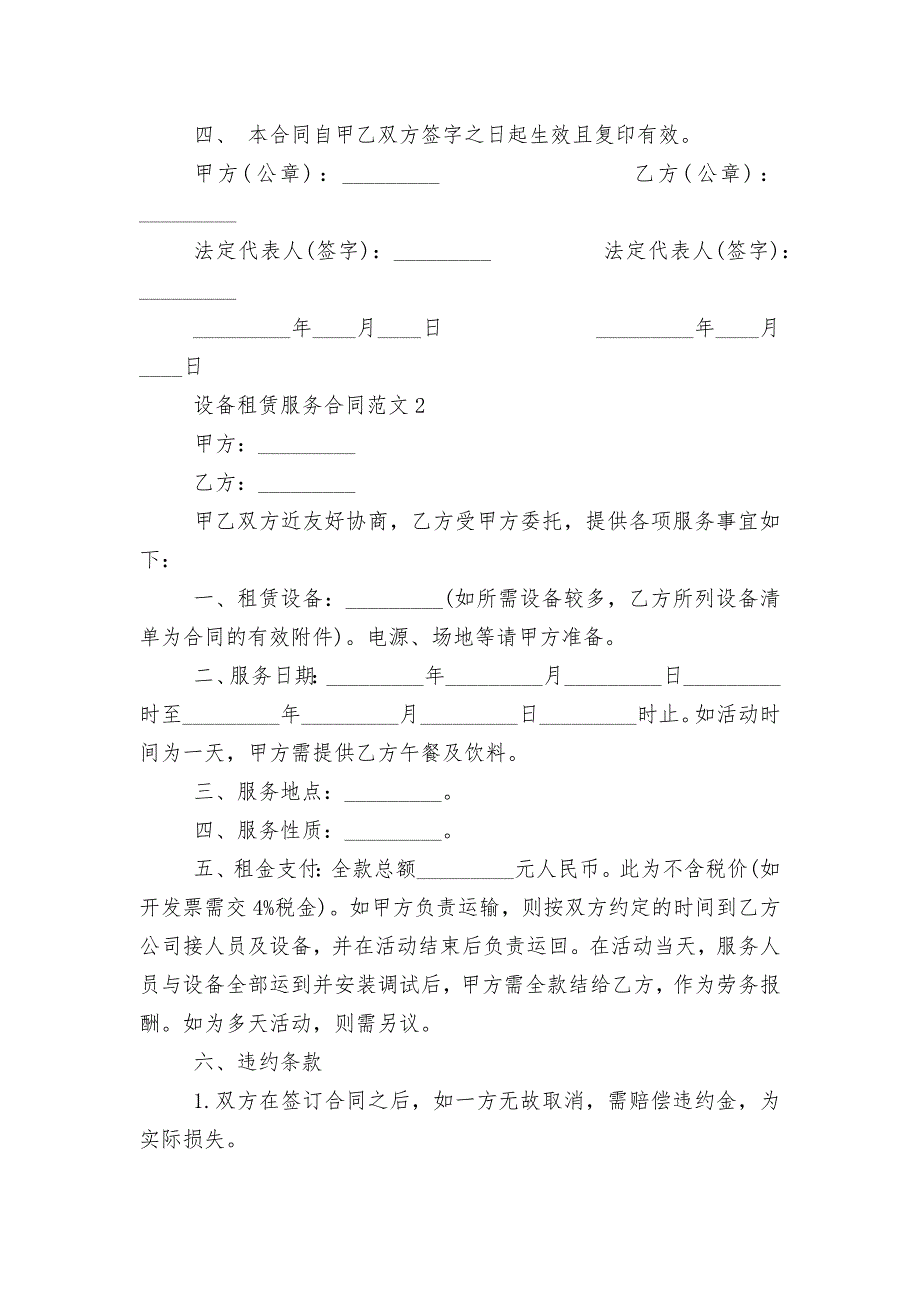 四、 本合同自甲乙双方签字之日起生效且复印有效。
甲方(公章)：_________ 乙方(公章)：
_________
法定代表人(签字)：_________ 法定代表人(签字)：
_________
_________年____月____日 _________年____月
____日
设备租赁服务合同范文2
甲方：_________
乙方：_________
甲乙双方近友好协商，乙方受甲方委托，提供各项服务事宜如
下：
一、租赁设备：_________(如所需设备较多，乙方所列设备清
单为合同的有效附件)。电源、场地等请甲方准备。
二、服务日期：_________年_________月_________日_________
时至_________年_________月_________日_________时止。如活动时
间为一天，甲方需提供乙方午餐及饮料。
三、服务地点：_________。
四、服务性质：_________。
五、租金支付：全款总额_________元人民币。此为不含税价(如
开发票需交4%税金)。如甲方负责运输，则按双方约定的时间到乙方
公司接人员及设备，并在活动结束后负责运回。在活动当天，服务人
员与设备全部运到并安装调试后，甲方需全款结给乙方，作为劳务报
酬。如为多天活动，则需另议。
六、违约条款
1.双方在签订合同之后，如一方无故取消，需赔偿违约金，为
实际损失。